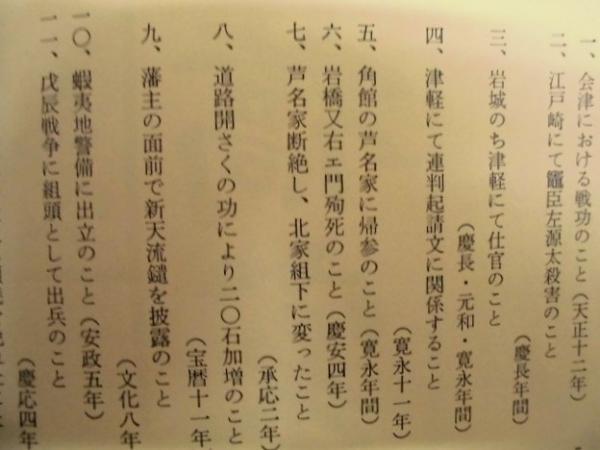 一、会津における戦功のこと（天正十二年）
二、江戸崎にて寵臣左源太殺害のこと
（慶長年間）
三、岩城のち津軽にて仕官のこと
（慶長・元和・寛永年間）
四、津軽にて連判起請文に関係すること
（寛永十一年）
五、角館の芦名家に帰参のこと（寛永年間）
六、岩橋又右エ門殉死のこと（慶安四年）
七、芦名家断絶し、北家組下に変ったこと
（承応二年）
八、道路開さくの功により二〇石加増のこと
（宝暦十一年）
九、藩主の面前で新天流鑓を披露のこと
（文化八年
一〇、蝦夷地警備に出立のこと（安政五年）
一一、戊辰戦争に組頭として出兵のこと
（慶応四年